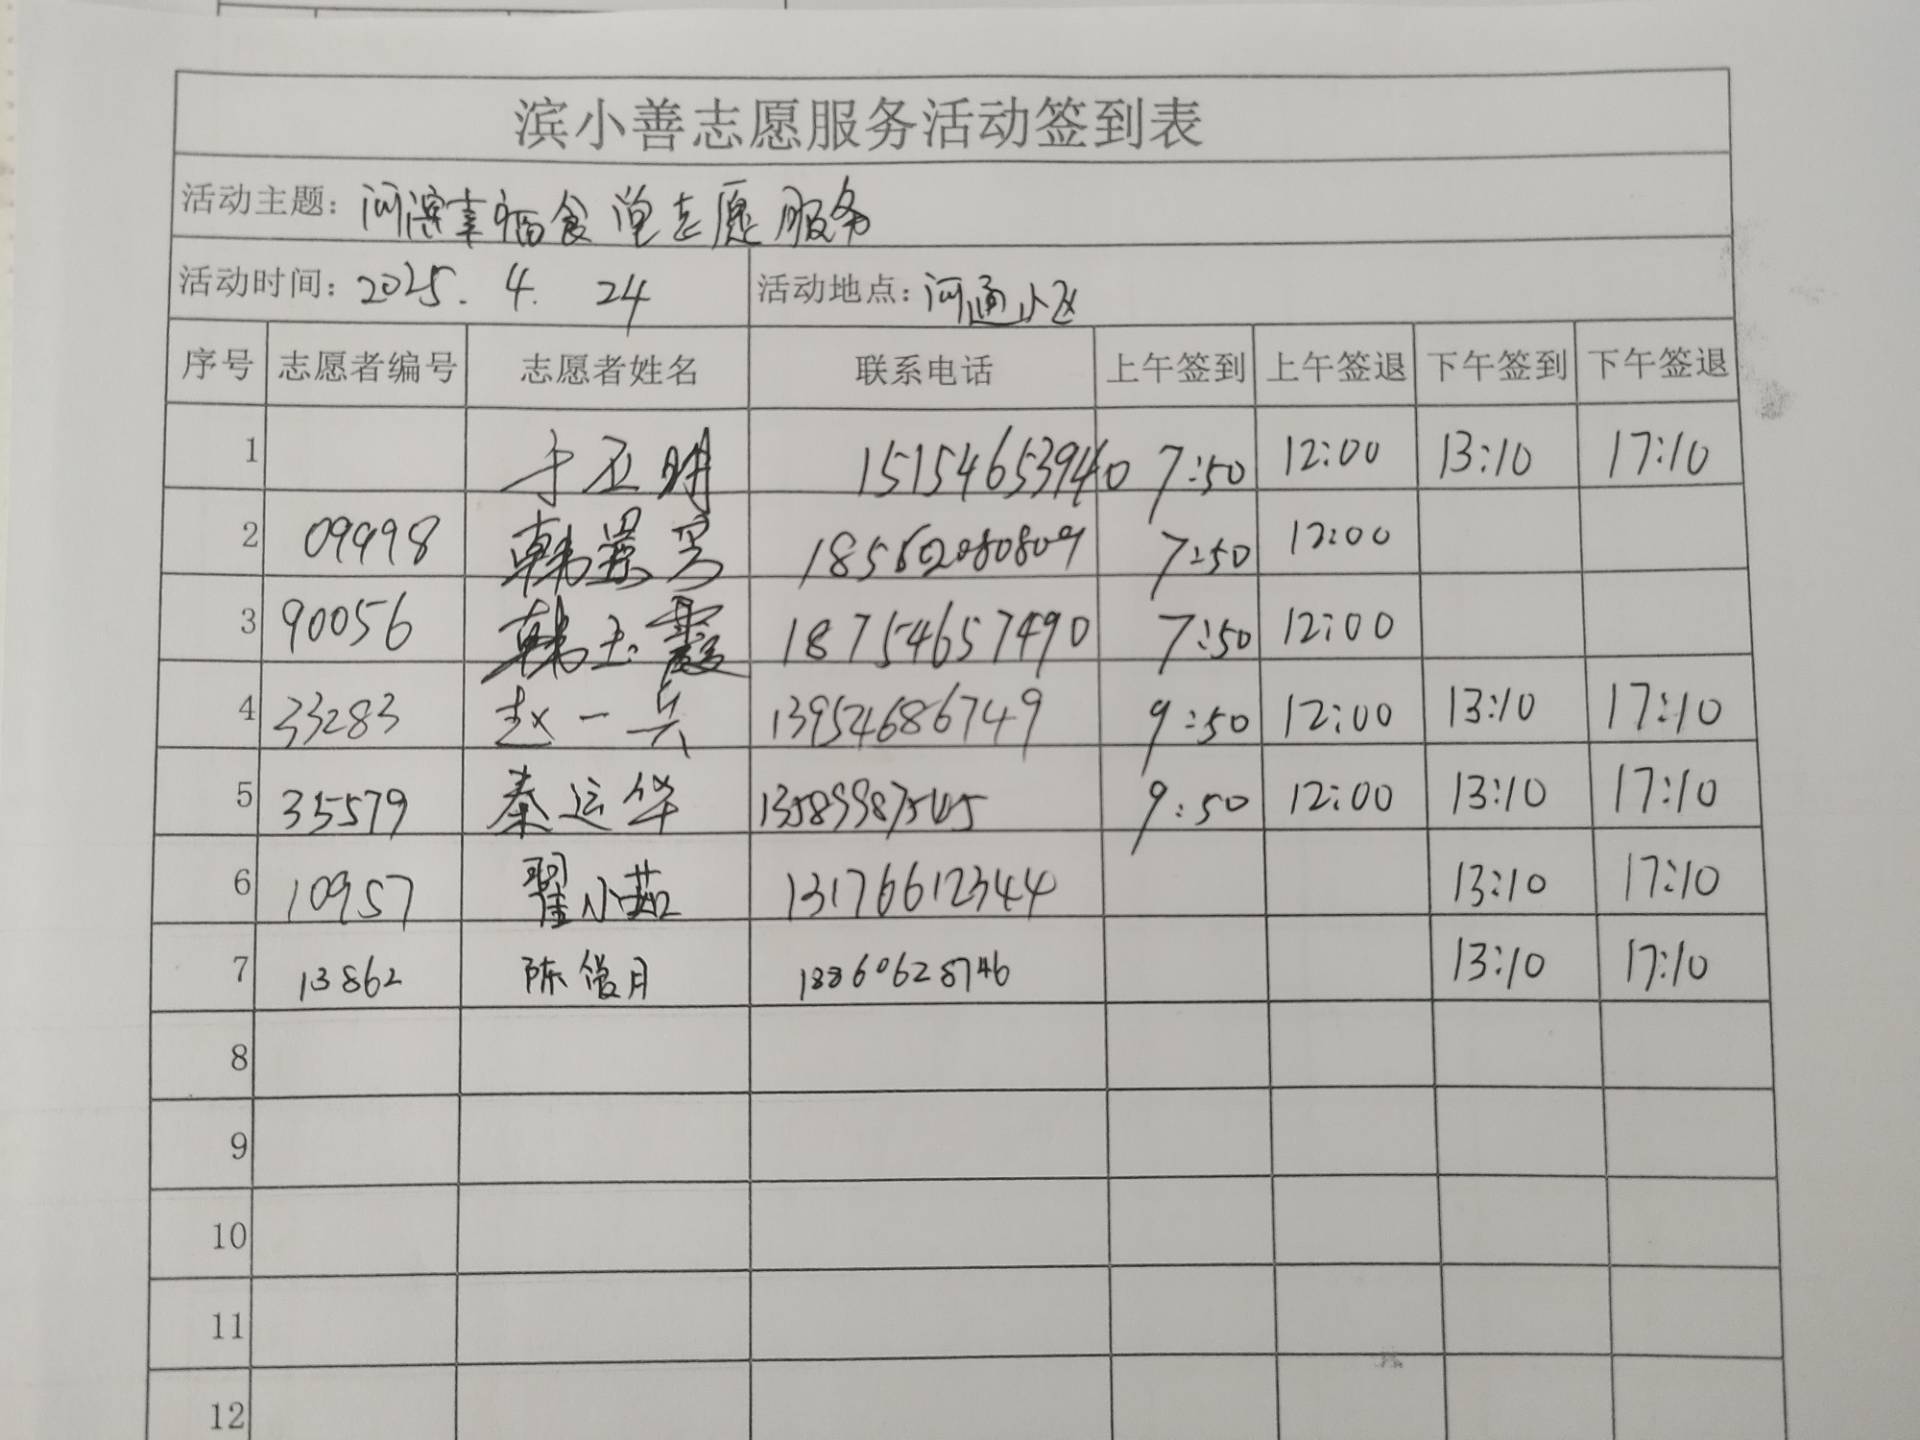 滨小善志愿服务活动签到表
活动主题：河滨幸福食堂志愿服务
活动时间：2025.4.24 活动地点：河通小区
序号 志愿者编号 志愿者姓名 联系电话 上午签到 上午签退 下午签到 下午签退
1 于卫明 15154653940 7:50 12:00 13:10 17:10
2 09998 韩景 18560280809 7:50 12:00
3 90056 韩玉霞 18754657490 7:50 12:00
4 33283 赵一兵 13954686749 9:50 12:00 13:10 17:10
5 35579 秦运华 9:50 12:00 13:10 17:10
6 10957 翟小茹 13176612344 13:10 17:10
7 13862 陈俊月 13:10 17:10
8
9
10
11
12